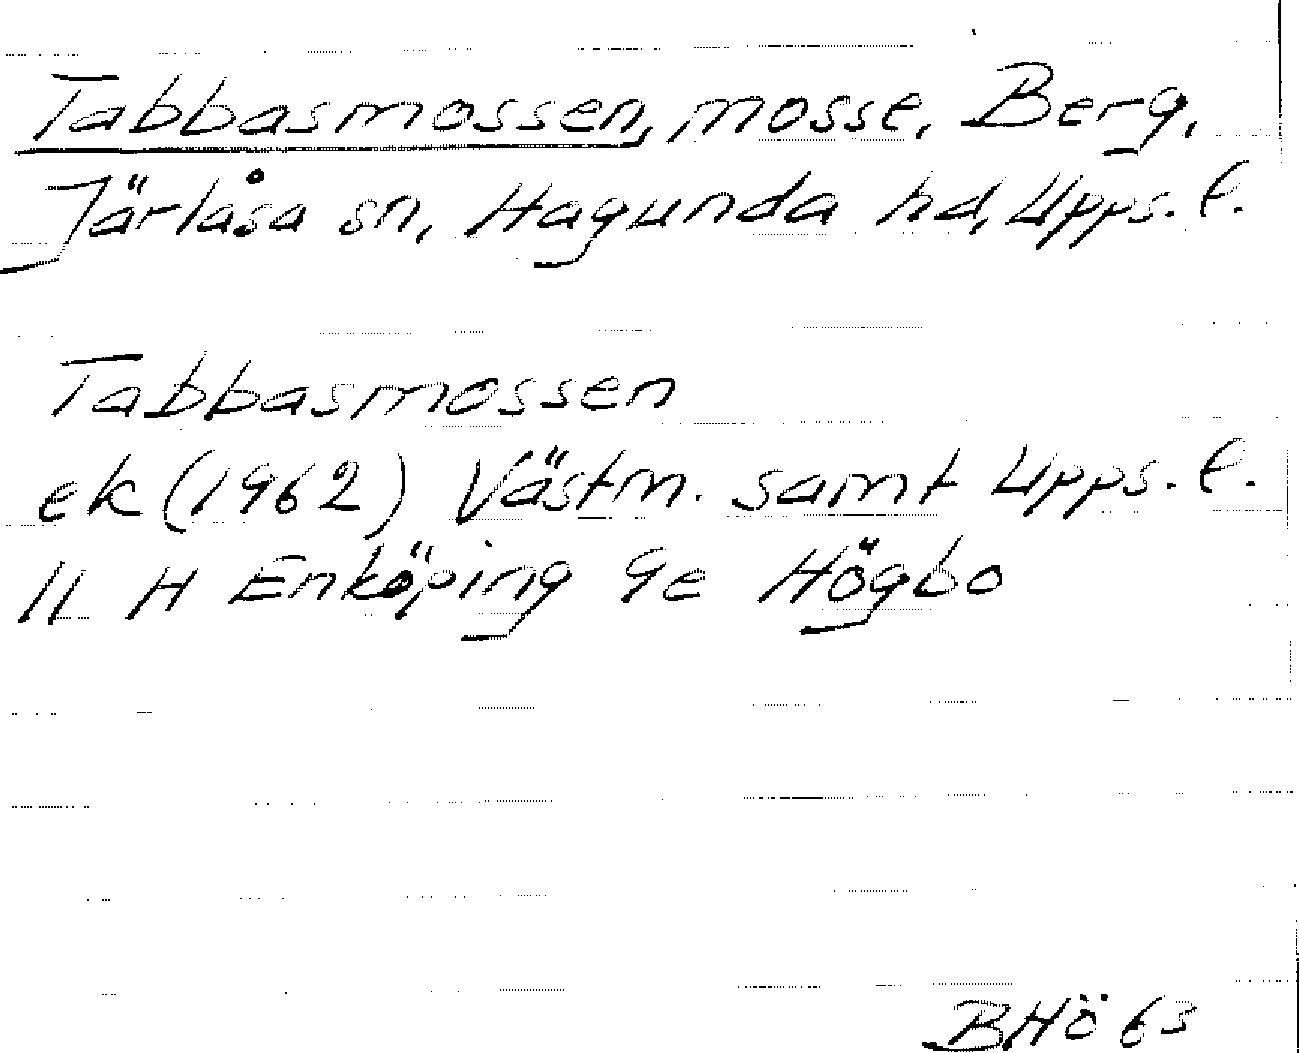 Tabbasmossen, mosse, Berg,
Järlåsa sn, Hagunda hd, Upps. l.
Tabbasmossen
ek (1962) Västm. samt Upps. l.
11 H Enköping 9e Högbo
BHö 63